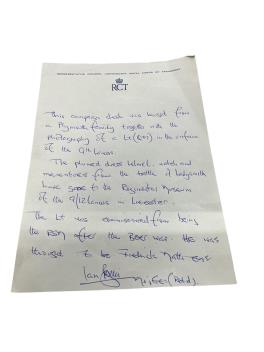 RCT
This campaign desk was bought from
a Plymouth family together with the
photography of a Lt (Qtr) in the uniform
of the 9th Lancers.
The plumed dress helmet, watch and
mementoes from the battle of Ladysmith
have gone to the Regimental Museum
of the 9/12 Lancers in Leicester.
The Lt was commissioned from being
the RSM after the Boer war. He was
thought to be Frederick
Ian